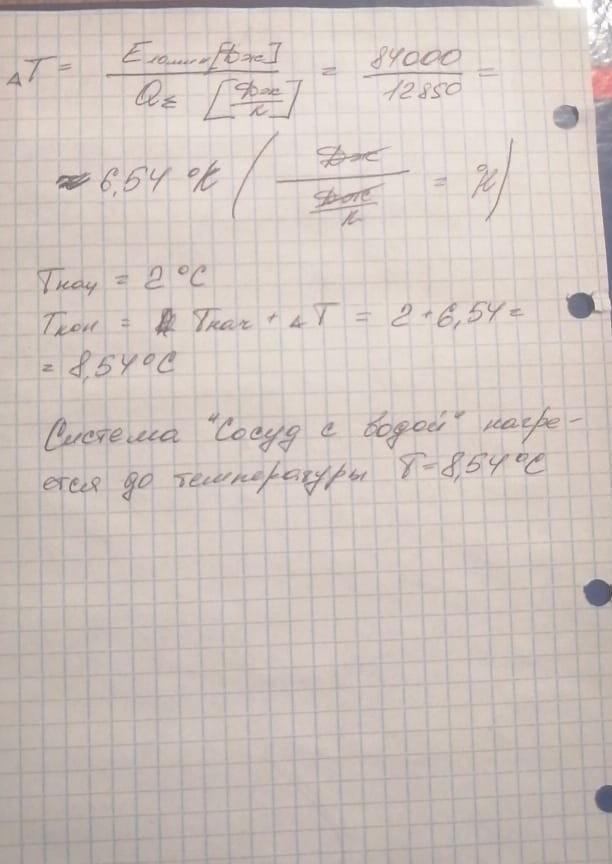 ΔT = Eломин[Дж] / QΣ [Дж/К] = 84000 / 12850 =
= 6,54 °К ( Дж / Дж/К = °К )
Tнач = 2 °C
Tкон = Tнач + ΔT = 2 + 6,54 =
= 8,54 °C
Система "Сосуд с водой" нагре-
ется до температуры T = 8,54 °C